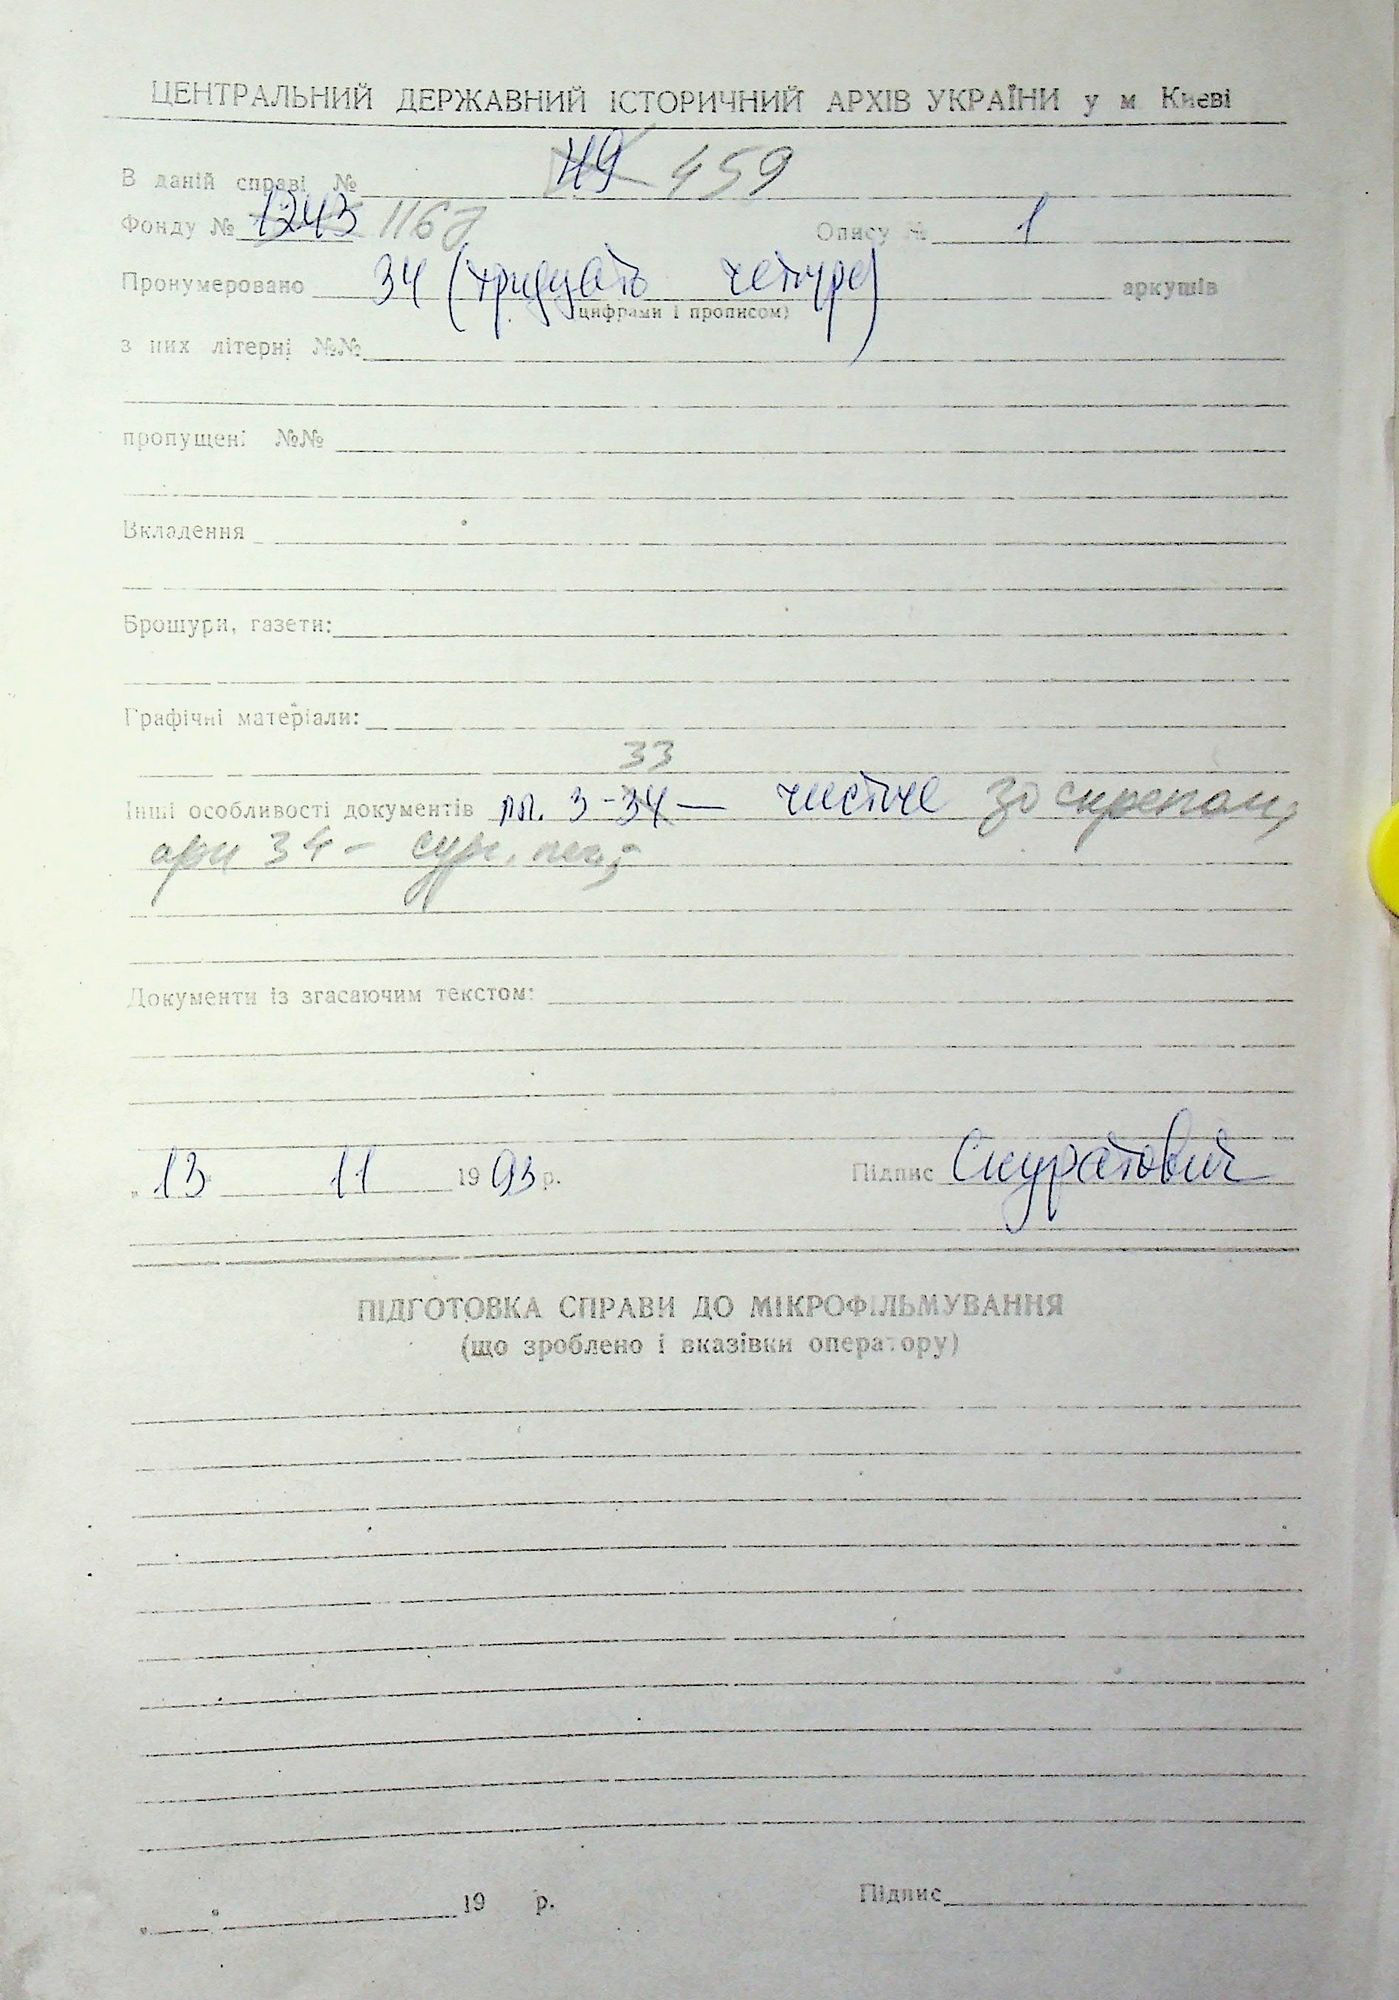 ЦЕНТРАЛЬНИЙ ДЕРЖАВНИЙ ІСТОРИЧНИЙ АРХІВ УКРАЇНИ у м Києві
В даній справі № 119 459
Фонду № 1243 1167 Опису № 1
Пронумеровано 34 (тридцать четыре) аркушів
(цифрами і прописом)
з них літерні №№
пропущені №№
Вкладення
Брошури, газети:
Графічні матеріали:
33
Інші особливості документів лл. 3-34 — чистые зо скрепами,
арк 34 - сург. печ.;
Документи із згасаючим текстом:
„ 13 " 11 1993 р. Підпис Скуратович
ПІДГОТОВКА СПРАВИ ДО МІКРОФІЛЬМУВАННЯ
(що зроблено і вказівки оператору)
„ " 19 р. Підпис